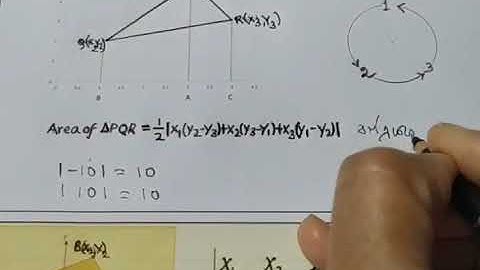 1
R(x3,y3)
Q(x2,y2)
2
3
B
A
C
Area of ΔPQR = 1/2|x1(y2-y3)+x2(y3-y1)+x3(y1-y2)|
|-10| = 10
|10| = 10
B(x2,y2)
x1 x2